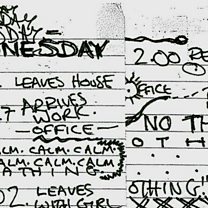 NESDAY
LEAVES HOUSE
ARRIVES
WORK.
OFFICE
CALM. CALM. CALM
CALM. CALM. CALM
ATHING
LEAVES
WITH GIRL
2.00
OFFICE
NO TH
OTH
OTHING